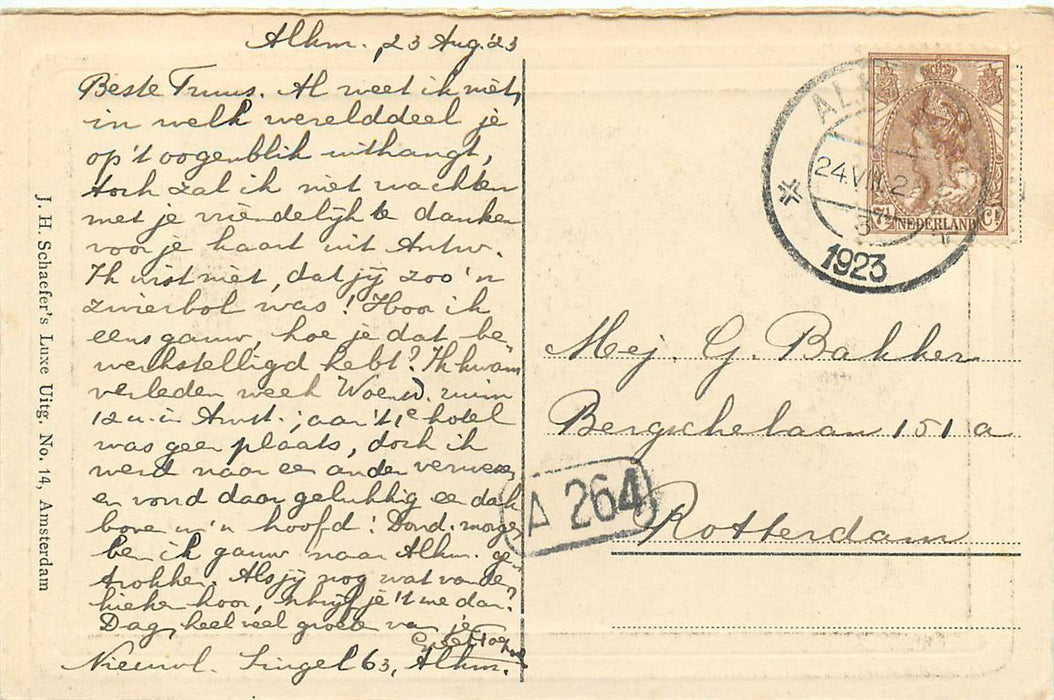 Alkm. 23 Aug. '23
Beste Truus. Al weet ik niet,
in welk werelddeel je
op 't oogenblik uithangt,
toch zal ik niet wachten
met je vriendelijk te danken
voor je kaart uit Antw.
Ik wist niet, dat jij zoo 'n
zwierbol was! Hoor ik
eens gauw, hoe je dat be-
werkstelligd hebt? Ik kwam
verleden week Woensd. ruim
12 u. in Amst.; aan 't 1e hotel
was geen plaats, doch ik
werd naar een ander verwezen
en vond daar gelukkig een dak
boven m'n hoofd! Dond. morgen
ben ik gauw naar Alkm. ge-
trokken. Als jij nog wat van de
hoor, schrijf je 't me dan?
Dag, heel veel groeten van je
Nieuwl. Singel 63, Alkm.
J. H. Schaefer's Luxe Uitg. No. 14, Amsterdam
AL
24.VIII.2
1923
7½ NEDERLAND Ct
Mej. G. Bakker
Bergschelaan 151 a
Rotterdam
A 264